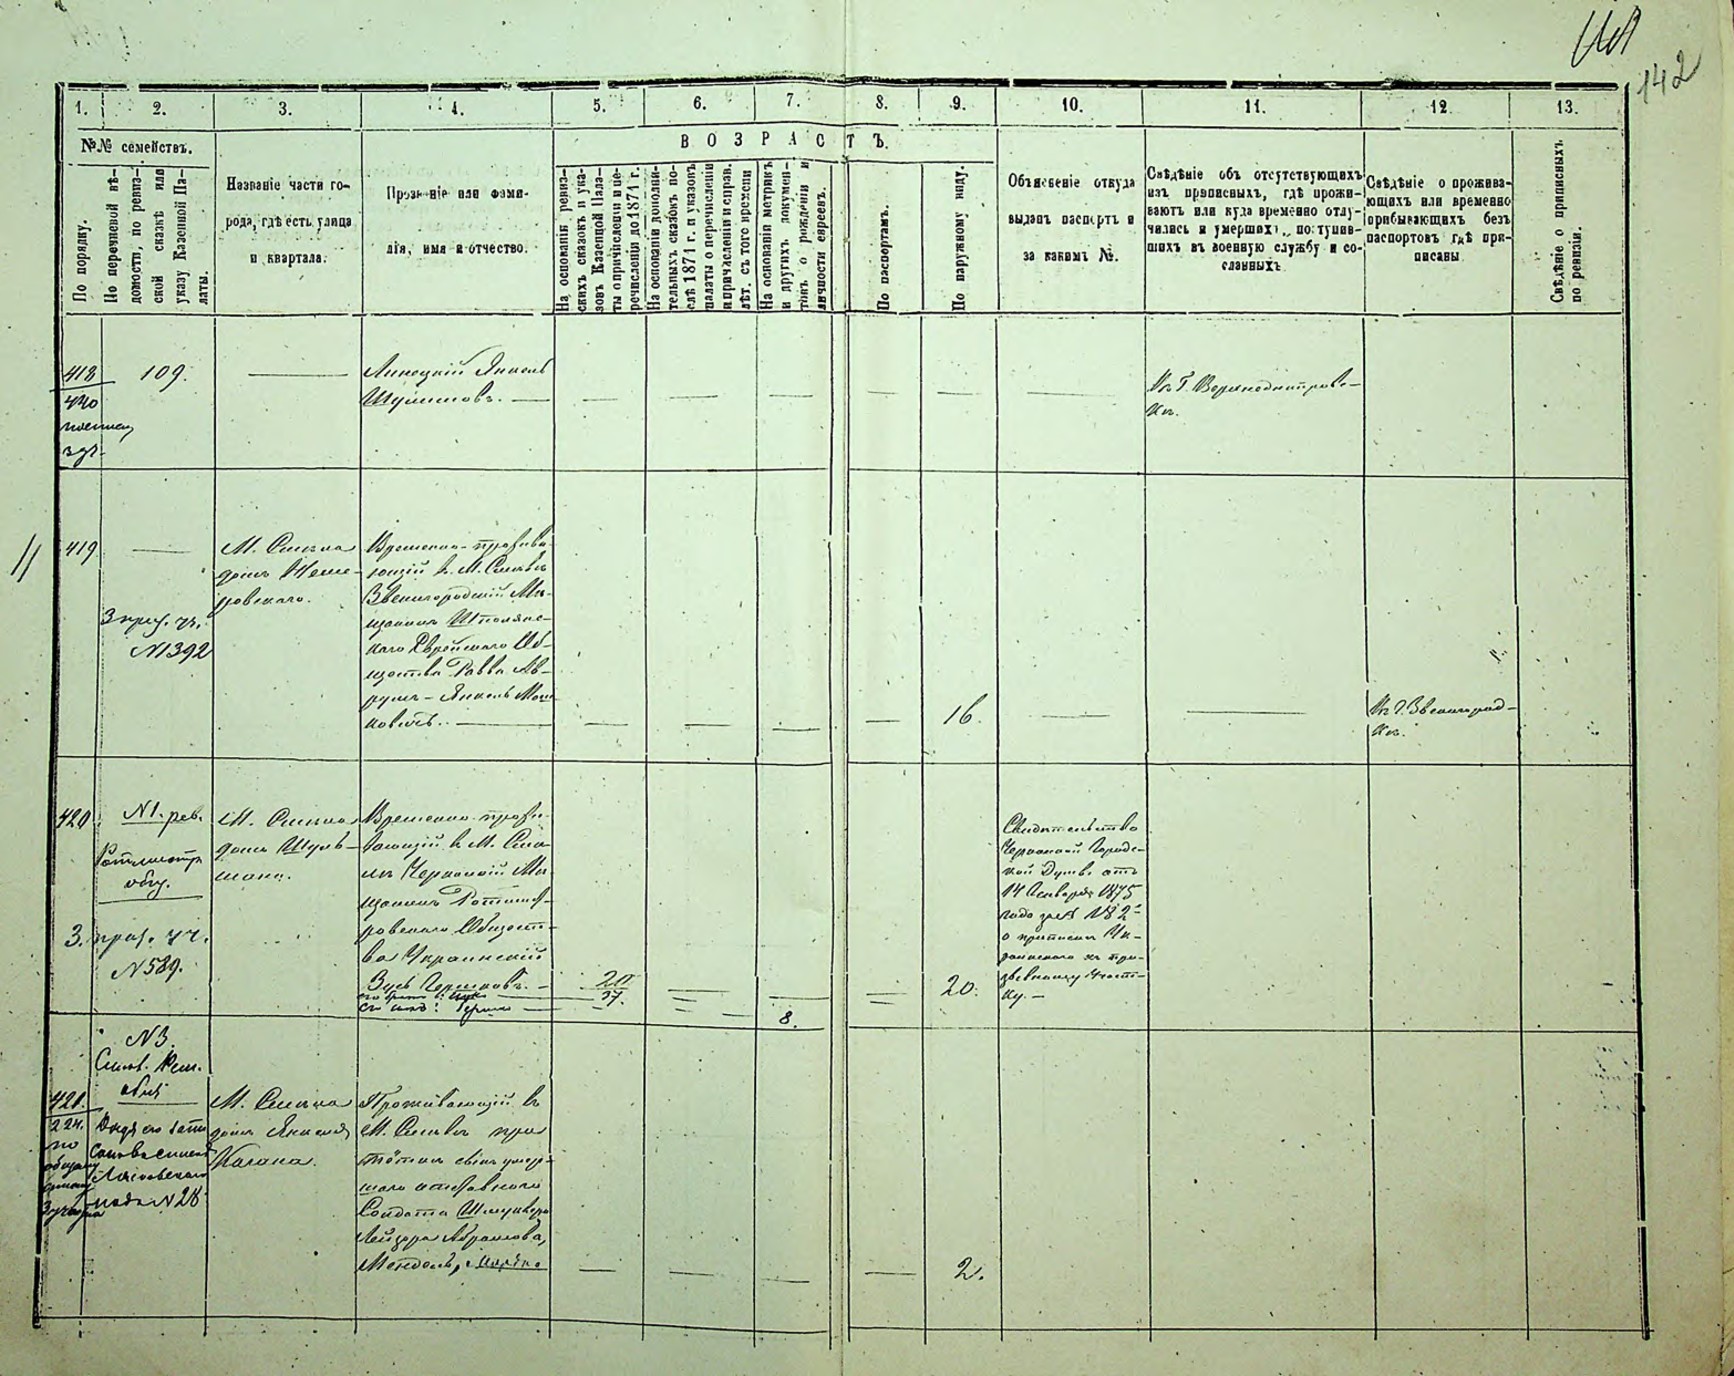 142
1. 2. 3. 4. 5. 6. 7. 8. 9. 10. 11. 12. 13.
№№ семействъ.
По порядку.
По перечневой вѣ-
домости, по ревиз-
ской сказкѣ или
указу Казенной Па-
латы.
Названіе части го-
рода, гдѣ есть улица
и квартала.
Прозваніе или фами-
лія, имя и отчество.
ВОЗРАСТЪ.
На основаніи ревиз-
скихъ сказокъ и ука-
зовъ Казенной Пала-
ты о причисленіи и пе-
речисленіи до 1871 г.
На основаніи дополни-
тельныхъ сказокъ по-
слѣ 1871 г. и указовъ
палаты о перечисленіи
и причисленіи и справ.
лѣт. съ того времени
На основаніи метрикъ
и другихъ докумен-
товъ о рожденіи и
личности евреевъ.
По паспортамъ.
По наружному виду.
Объясненіе откуда
выданъ паспортъ и
за какимъ №.
Свѣдѣніе объ отсутствующихъ
изъ приписныхъ, гдѣ прожи-
ваютъ или куда временно отлу-
чились и умершихъ, поступив-
шихъ въ военную службу и со-
сланныхъ
Свѣдѣніе о прожива-
ющихъ или временно
прибывающихъ безъ
паспортовъ гдѣ при-
писаны
Свѣдѣніе о приписныхъ
по ревизіи.
418
440
109.
Липецкій Янкель
Шулимовъ.
Въ Г. Верхнеднѣпров-
скъ.
419
3 приз. уч.
№1392
М. Смѣла
домъ
ровскаго.
Временно-прожива-
ющій в. М. Смѣлѣ
Звенигородскій Мѣ-
щанинъ Шполянс-
каго Еврейскаго Об-
щества Равва Ав-
румъ-Янкель Мош-
ковичъ.
16.
Въ Г. Звенигород-
кѣ.
420
№1. рев.
общ.
3. приз. уч.
№589.
М. Смѣла
домъ Шуль-
мана.
Временно прожи-
вающій в М. Смѣ-
лѣ Черкаскій Мѣ-
щанинъ Ротмист-
ровскаго Общест-
ва Украинскій
Зусь Гершковъ.
его сынъ: Герш
20
37.
8.
20.
Свидѣтельство
Черкаской Городс-
кой Думы отъ
14 Января 1875
года за № 82
о припискѣ Ук-
раинскаго къ при-
зывному участ-
ку.
№3.
Смѣл. Рем.
421.
224.
по
общему
списку
М. Смѣла
домъ Янкеля
Кагана.
Проживающій въ
М. Смѣлѣ при
своей умер-
шаго отставнаго
Солдата
Лейзера Абрамова,
Мендель,
2.